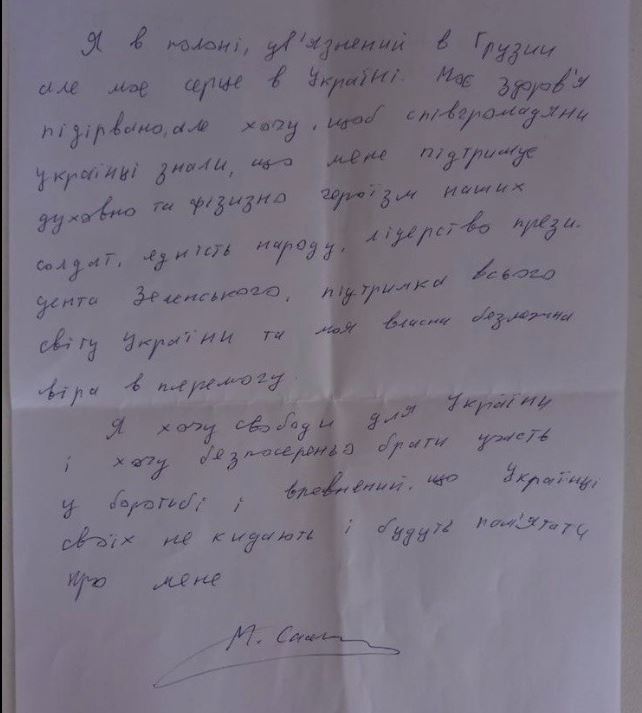 Я в полоні, ув'язнений в Грузии
але моє серце в Україні. Моє здоров'я
підірвано, але хочу, щоб співгромадяни
українці знали, що мене підтримує
духовно та фізично героїзм наших
солдат, єдність народу, лідерство прези-
дента Зеленського, підтримка всього
світу України та моя власна безмежна
віра в перемогу.
Я хочу свободи для України
і хочу безпосереньо брати участь
у боротьбі і впевнений, що Українці
своїх не кидають і будуть пам'ятати
про мене
М.